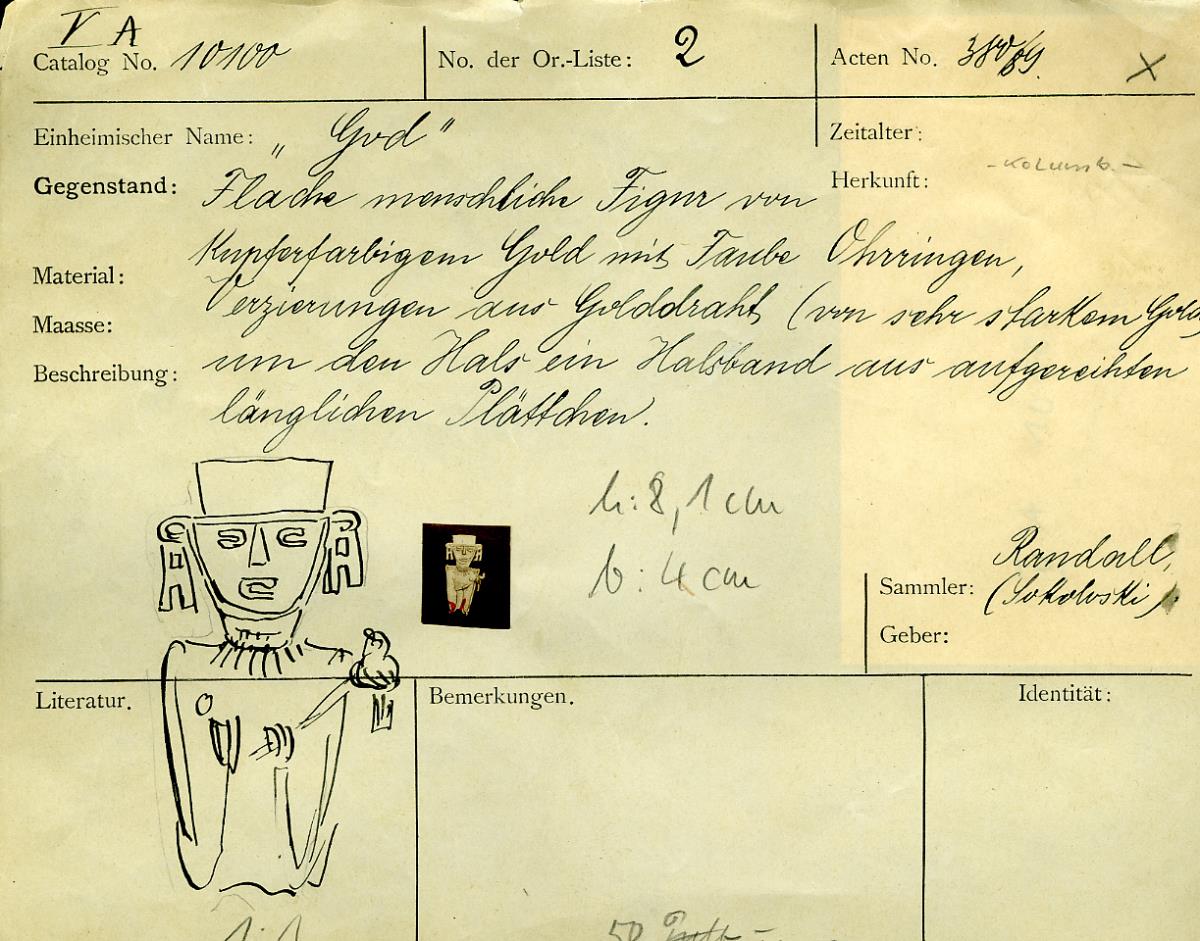 V A
Catalog No. 10100
No. der Or.-Liste: 2
Acten No. 380/89. X
Einheimischer Name: „God“
Zeitalter:
Gegenstand: Flache menschliche Figur von
Herkunft: - Kolumb. -
kupferfarbigem Gold mit Taube Ohrringen,
Material:
Verzierungen aus Golddraht (von sehr starkem Gold)
Maasse:
um den Hals ein Halsband aus aufgereihten
Beschreibung:
länglichen Plättchen.
h: 8,1 cm
b: 4 cm
Sammler: Randall, (Sokoloski)
Geber:
Literatur.
Bemerkungen.
Identität:
1:1
50